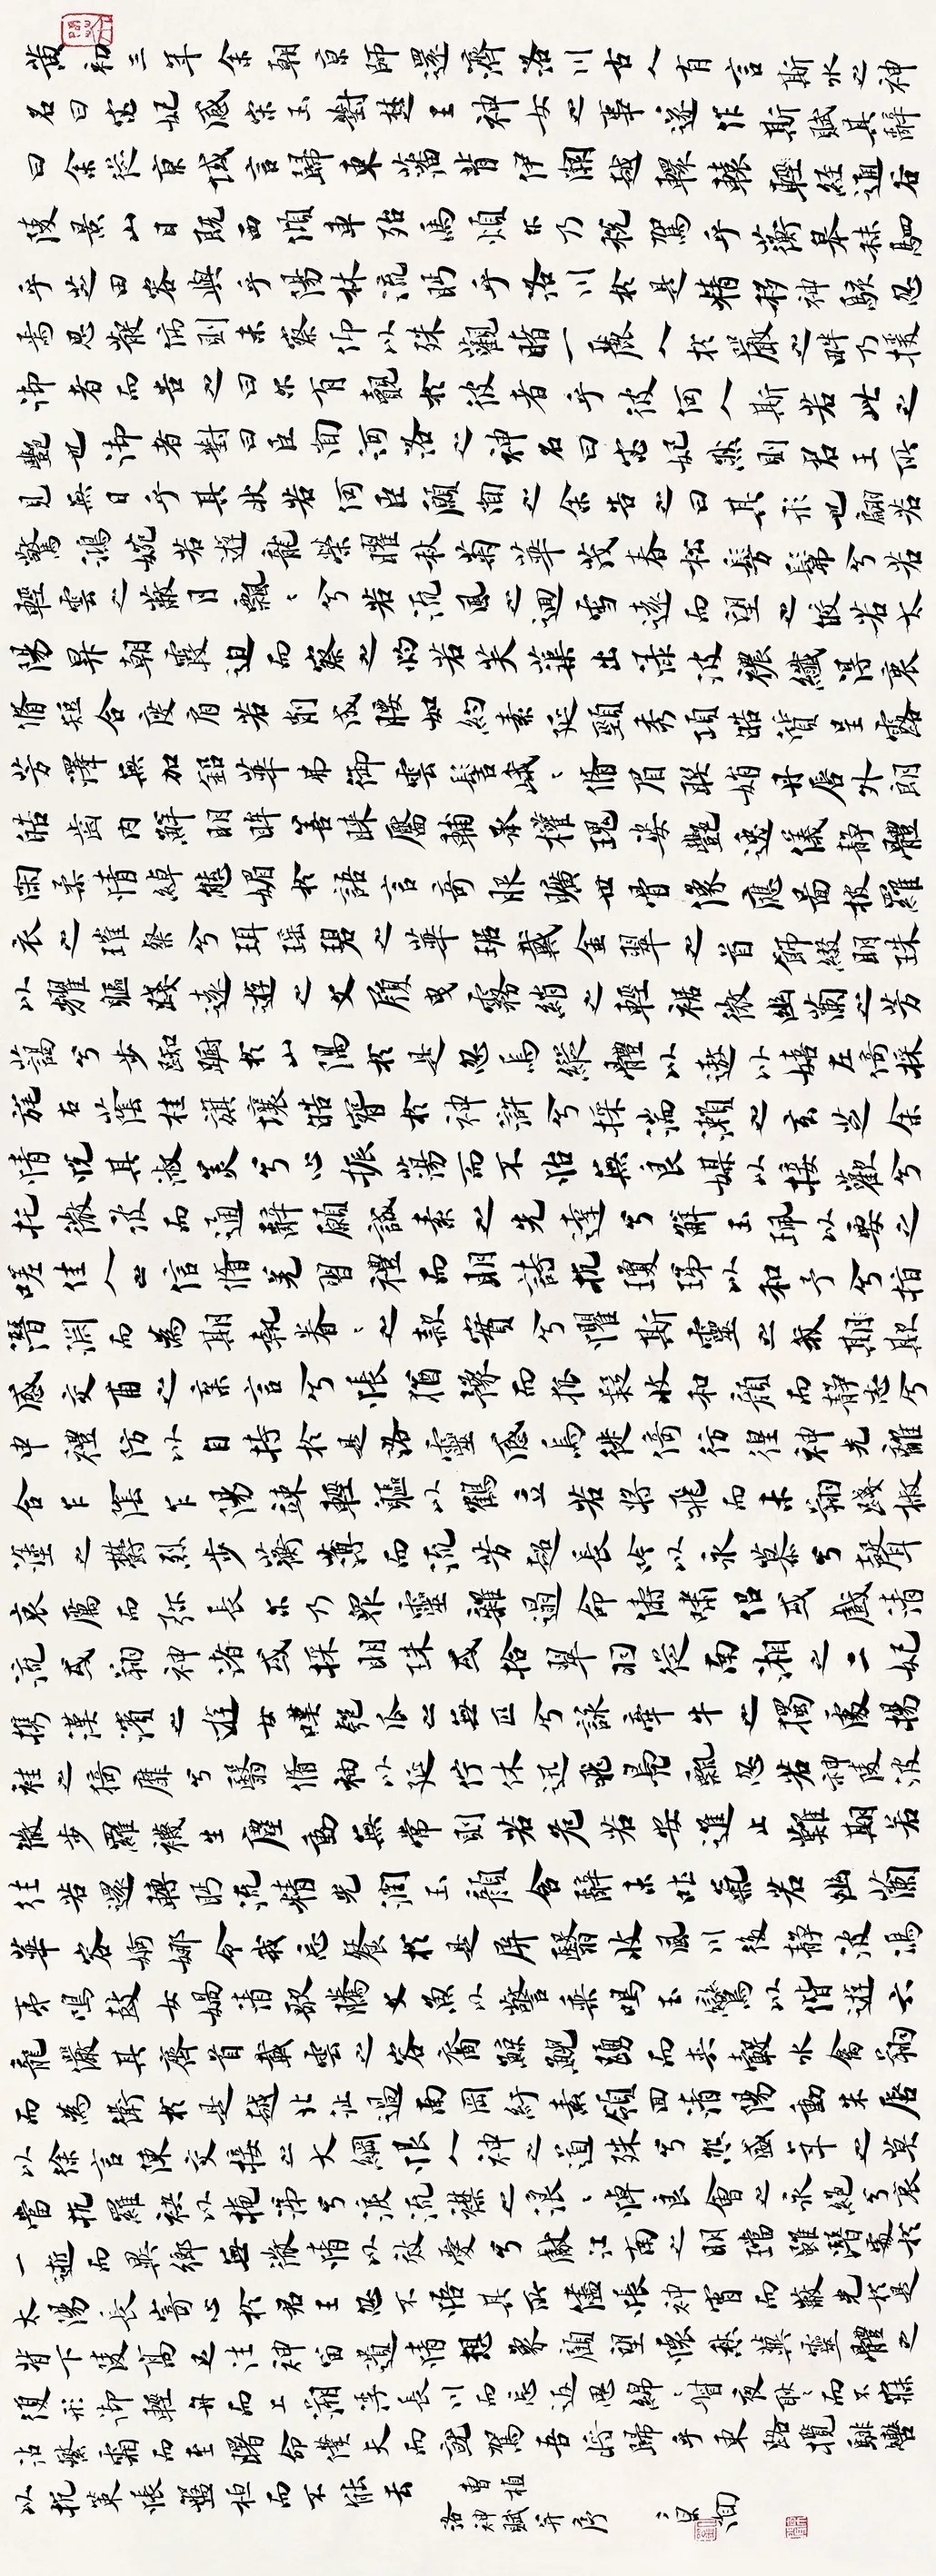 黄初三年余朝京師還濟洛川古人有言斯水之神
名曰宓妃感宋玉對楚王神女之事遂作斯賦其辭
曰余從京域言歸東藩背伊闕越轘轅經通谷
陵景山日既西傾車殆馬煩尔乃税駕乎蘅皋秣駟
乎芝田容與乎陽林流眄乎洛川於是精移神駭忽
焉思散俯則未察仰以殊觀睹一麗人於巖之畔乃援
御者而告之曰尔有覿於彼者乎彼何人斯若此之
艷也御者對曰臣聞河洛之神名曰宓妃然則君王所
見無日乎其狀若何臣願聞之余告之曰其形也翩若
驚鴻婉若遊龍榮曜秋菊華茂春松髣髴兮若
輕雲之蔽月飄〻兮若流風之迴雪遠而望之皎若太
陽昇朝霞迫而察之灼若芙蕖出淥波襛纖得衷
脩短合度肩若削成腰如約素延頸秀項皓質呈露
芳澤無加鉛華弗御雲髻峨〻脩眉聯娟丹唇外朗
皓齒内鮮明眸善睞靨輔承權瑰姿艷逸儀靜體
閑柔情綽態媚於語言奇服曠世骨像應圖披羅
衣之璀粲兮珥瑶碧之華琚戴金翠之首飾綴明珠
以耀軀踐遠遊之文履曳霧綃之輕裾微幽蘭之芳
藹兮步踟躕於山隅於是忽焉縱體以遨以嬉左倚採
旄右蔭桂旗壤皓腕於神滸兮採湍瀨之玄芝余
情悦其淑美兮心振蕩而不怡無良媒以接歡兮
托微波而通辭願誠素之先達兮解玉珮以要之
嗟佳人之信脩羌習禮而明詩抗瓊珶以和予兮指
潛淵而為期執眷〻之款實兮懼斯靈之我期
感交甫之棄言兮悵猶豫而狐疑收和顔而靜志兮
申禮防以自持於是洛靈感焉徙倚彷徨神光離
合乍陰乍陽竦輕軀以鶴立若將飛而未翔踐椒
塗之鬱烈步蘅薄而流芳超長吟以永慕兮聲
哀厲而弥長尔乃衆靈雜遝命儔嘯侣或戲清
流或翔神渚或採明珠或拾翠羽從南湘之二妃
携漢濱之遊女嘆匏瓜之無匹兮詠牽牛之獨處揚
袿之猗靡兮翳脩袖以延佇休迅飛鳧飄忽若神陵波
微步羅襪生塵動無常則若危若安進止難期若
往若還轉眄流精光潤玉顔含辭未吐氣若幽蘭
華容婀娜令我忘餐於是屏翳收風川後靜波馮
夷鳴鼓女媧清歌騰文魚以警乘鳴玉鸞以偕遊六
龍儼其齊首載雲之容裔鯨鯢踊而夾轂水禽翔
而為衛於是越北沚過南岡紆素領迴清陽動朱唇
以徐言陳交接之大綱恨人神之道殊兮怨盛年之莫
當抗羅袂以掩涕兮淚流襟之浪〻悼良會之永絶兮哀
一逝而異鄉無微情以效愛兮獻江南之明璫雖潛處於
太陽長寄心於君王忽不悟其所儘悵神宵而蔽光於是
背下陵高足往神留遺情想象顧望懷愁冀靈體之
復形御輕舟而上溯浮長川而忘返思綿〻曾夜耿〻而不寐
沾繁霜而至曙命僕夫而就駕吾將歸乎東路攬騑轡
以抗策悵盤桓而不能去
曹植
洛神賦并序